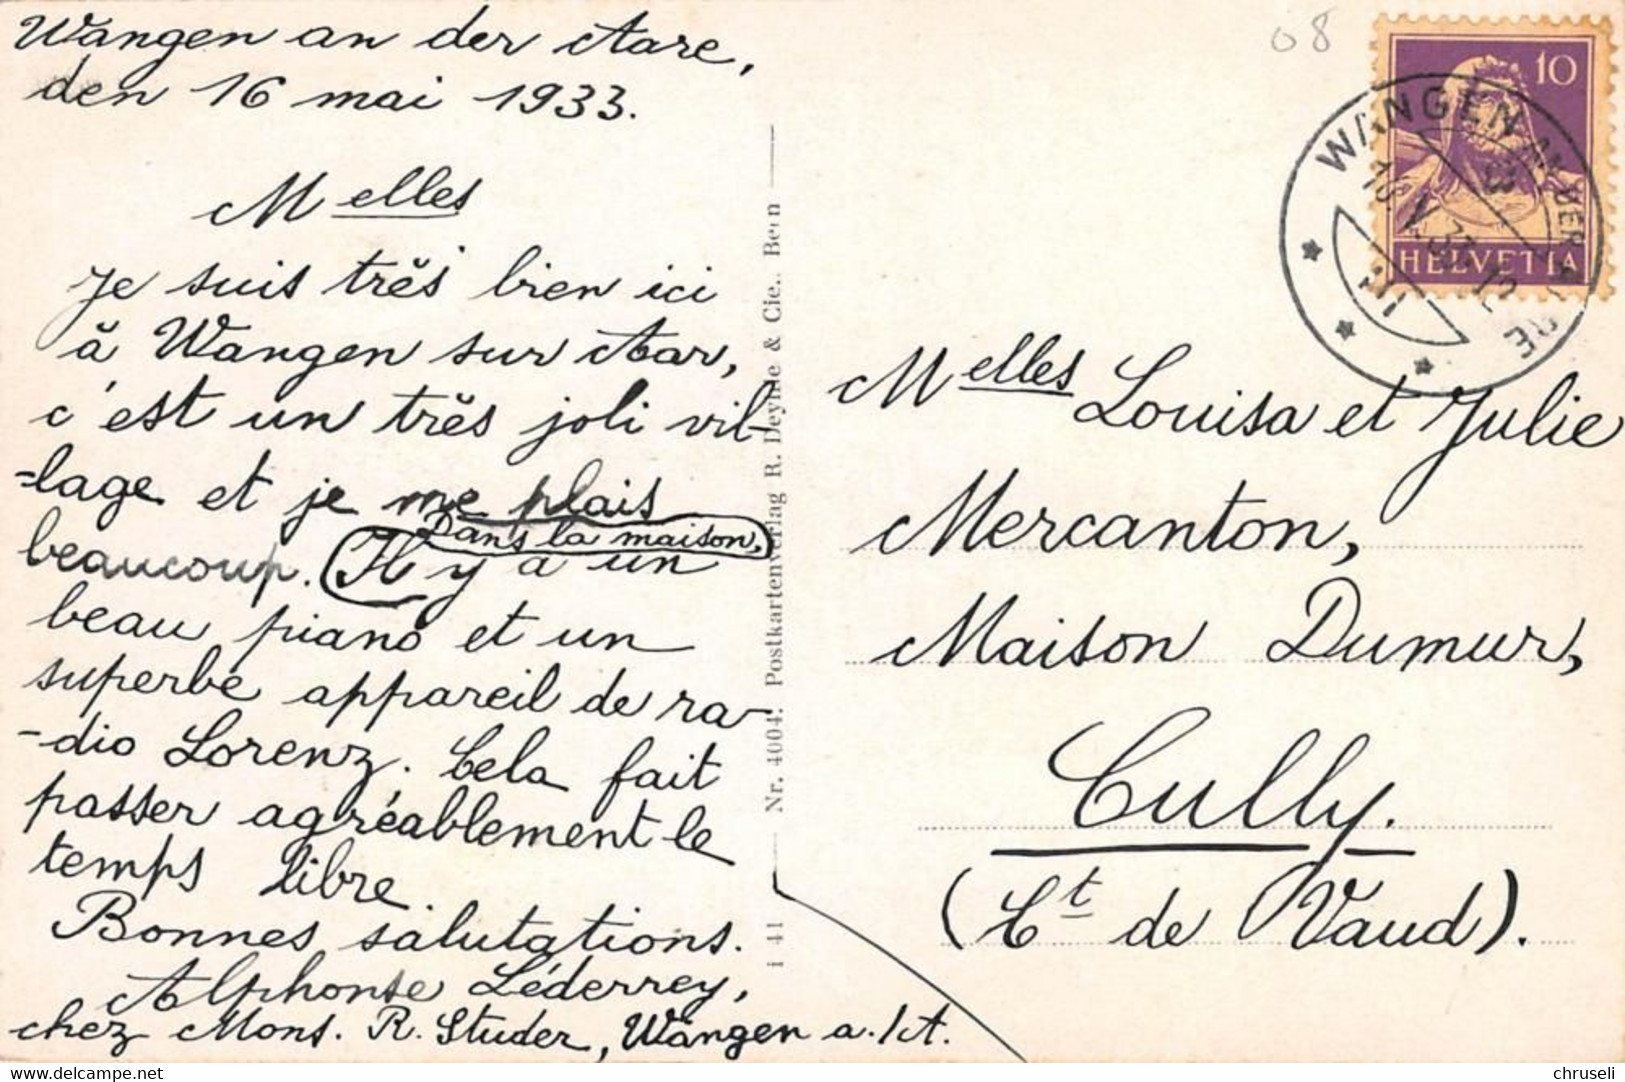 Wangen an der Aare,
den 16 mai 1933.
Melles
Je suis très bien ici
à Wangen sur Aar,
c'est un très joli vil-
-lage et je me plais
beaucoup. Il y a un
Dans la maison,
beau piano et un
superbe appareil de ra-
-dio Lorenz. Cela fait
passer agréablement le
temps libre
Bonnes salutations.
Alphonse Léderrey,
chez Mons. R. Studer, Wangen a./A.
i 41 Nr. 4004. Postkartenverlag R. Deyhle & Cie., Bern
08
10
HELVETIA
WANGEN AN DER AARE
16. V. 33. 12
III
Melles Louisa et Julie
Mercanton,
Maison Dumur,
Cully.
(Ct de Vaud).
delcampe.net
chruseli